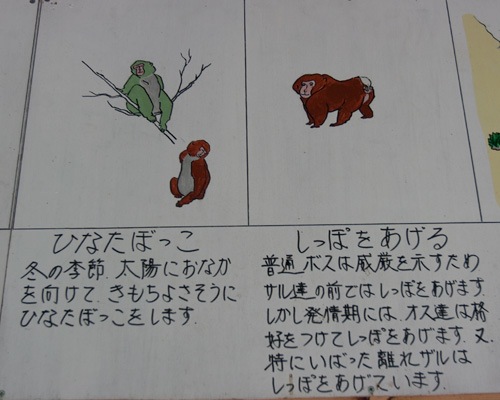 ひなたぼっこ
冬の季節、太陽におなか
を向けて、きもちよさそうに
ひなたぼっこをします.
しっぽをあげる
普通ボスは威厳を示すため
サル達の前ではしっぽをあげます.
しかし発情期には、オス達は格
好をつけてしっぽをあげます.又、
特にいばった離れザルは
しっぽをあげています.